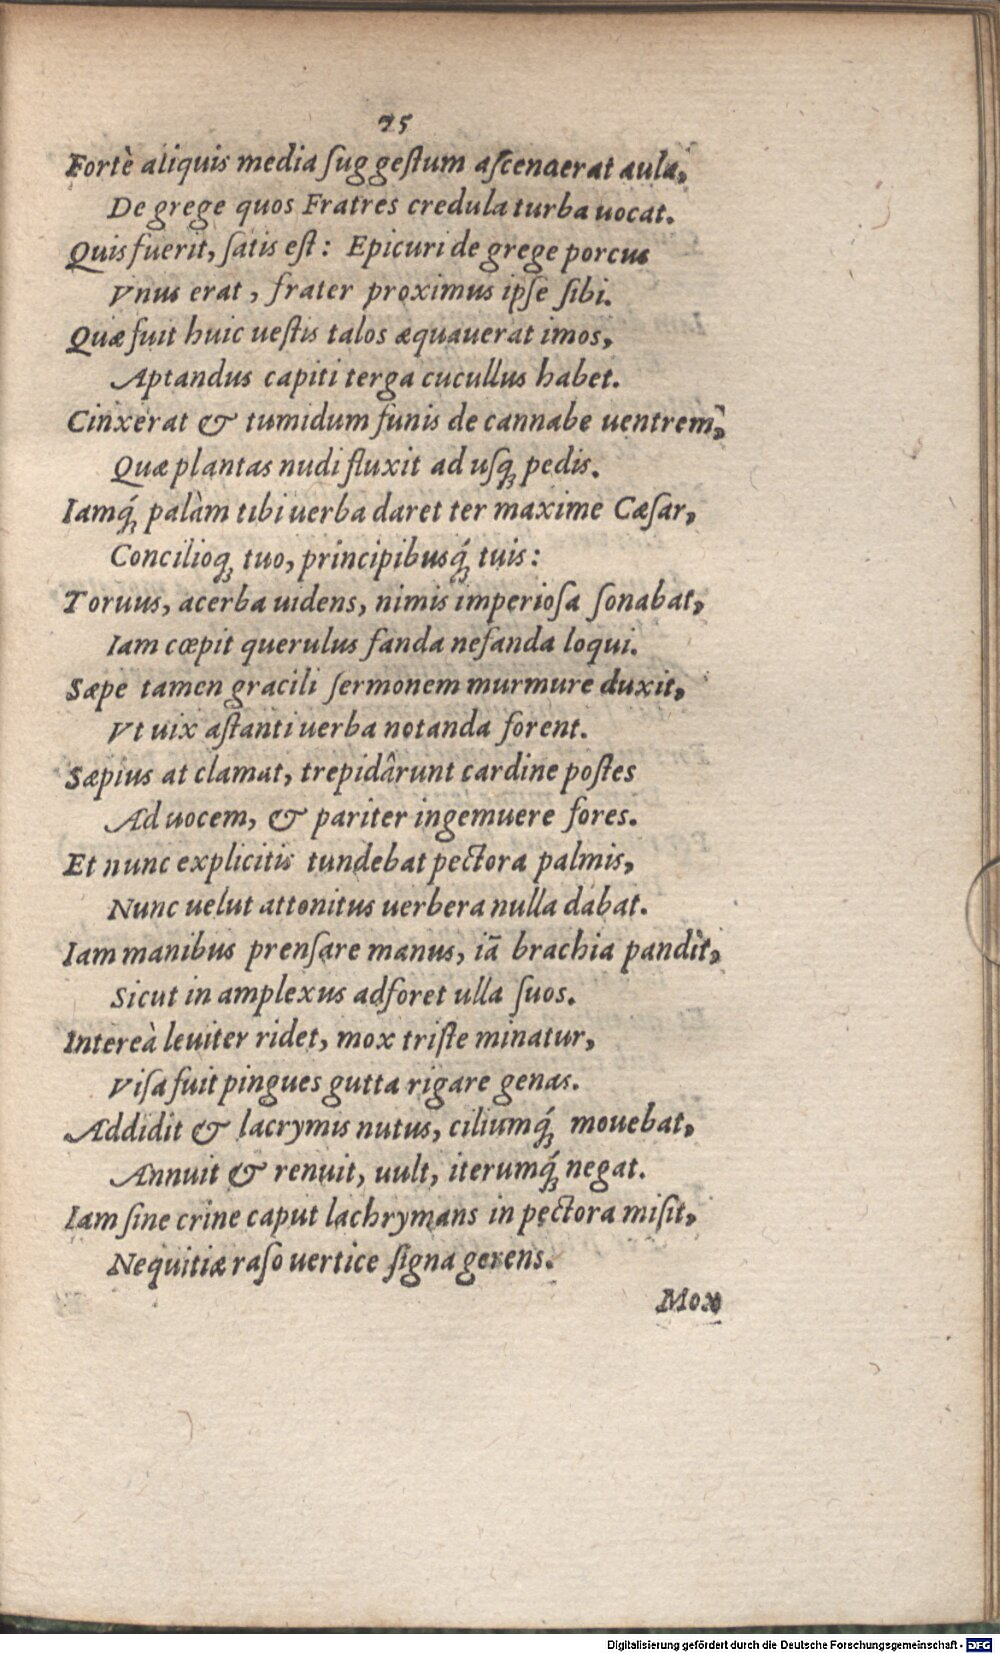 75
Fortè aliquis media ſuggeſtum aſcenderat aula,
De grege quos Fratres credula turba uocat.
Quis fuerit, ſatis eſt: Epicuri de grege porcus
Vnus erat, frater proximus ipſe ſibi.
Quæ fuit huic ueſtis talos æquauerat imos,
Aptandus capiti terga cucullus habet.
Cinxerat & tumidum funis de cannabe uentrem,
Quæ plantas nudi fluxit ad uſqꝫ pedis.
Iamqꝫ́ palàm tibi uerba daret ter maxime Cæſar,
Concilioqꝫ tuo, principibusqꝫ́ tuis:
Toruus, acerba uidens, nimis imperioſa ſonabat,
Iam cœpit querulus fanda nefanda loqui.
Sæpe tamen gracili ſermonem murmure duxit,
Vt uix aſtanti uerba notanda forent.
Sæpius at clamat, trepidârunt cardine poſtes
Ad uocem, & pariter ingemuere fores.
Et nunc explicitis tundebat pectora palmis,
Nunc uelut attonitus uerbera nulla dabat.
Iam manibus prenſare manus, iā brachia pandit,
Sicut in amplexus adforet ulla ſuos.
Intereà leuiter ridet, mox triſte minatur,
Viſa fuit pingues gutta rigare genas.
Addidit & lacrymis nutus, ciliumqꝫ́ mouebat,
Annuit & renuit, uult, iterumqꝫ́ negat.
Iam ſine crine caput lachrymans in pectora miſit,
Nequitiæ raſo uertice ſigna gerens.
Mox
Digitalisierung gefördert durch die Deutsche Forschungsgemeinschaft - DFG